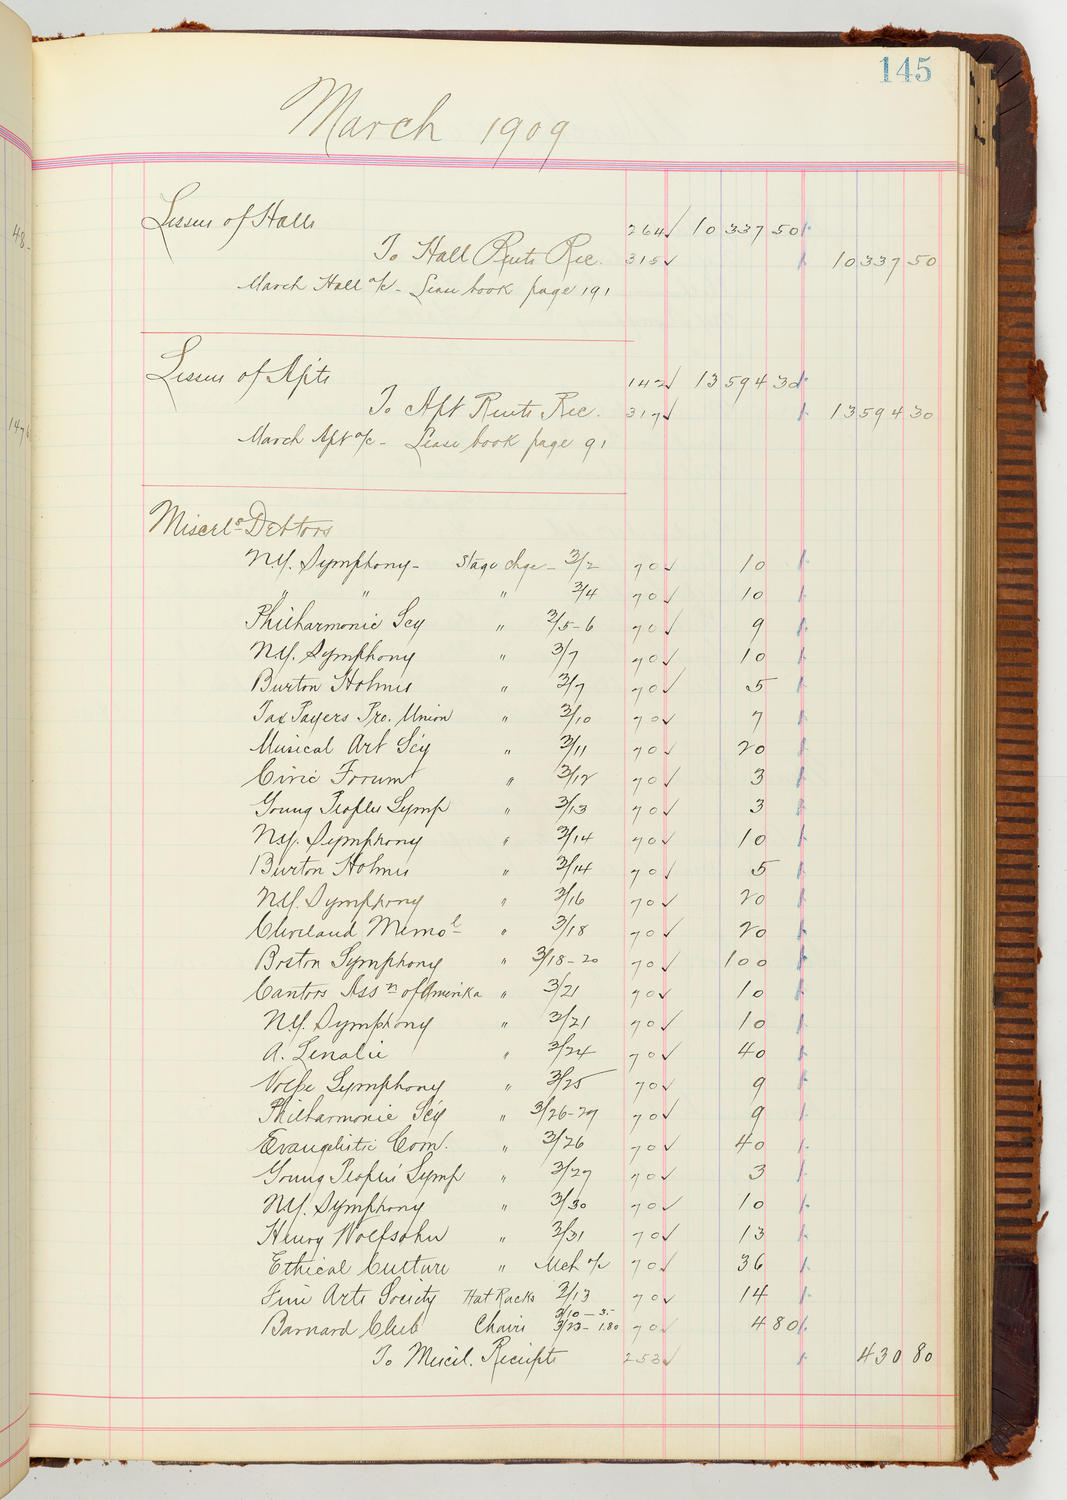 145
March 1909
Lessees of Halls 264 10 337 50
To Hall Rents Rec. 315 10 337 50
March Hall a/c - Lease book page 191
Lessees of Apts 142 13 594 30
To Apt Rents Rec. 317 13 594 30
March Apt a/c - Lease book page 91
Miscels Debtors
N.Y. Symphony - Stage chge - 3/2 70 10
" " " 3/4 70 10
Philharmonic Scy " 3/5-6 70 9
N.Y. Symphony " 3/7 70 10
Burton Holmes " 3/7 70 5
Tax Payers Pro. Union " 3/10 70 7
Musical Art Scy " 3/11 70 20
Civic Forum " 3/12 70 3
Young Peoples Symp " 3/13 70 3
N.Y. Symphony " 3/14 70 10
Burton Holmes " 3/14 70 5
N.Y. Symphony " 3/16 70 20
Cleveland Memol " 3/18 70 20
Boston Symphony " 3/18-20 70 100
Cantors Assn of Amerika " 3/21 70 10
N.Y. Symphony " 3/21 70 10
A. Lenalie " 3/24 70 40
Volpe Symphony " 3/25 70 9
Philharmonic Scy " 3/26-27 70 9
Evangelistic Com. " 3/26 70 40
Young Peoples' Symp " 3/27 70 3
N.Y. Symphony " 3/30 70 10
Henry Wolfsohn " 3/31 70 13
Ethical Culture " Mch a/c 70 36
Fine Arts Society Hat Racks 3/13 70 14
3/10 - 3.-
Barnard Club Chairs 3/23 - 1.80 70 4 80
To Miscel. Receipts 253 430 80
48-
147 6